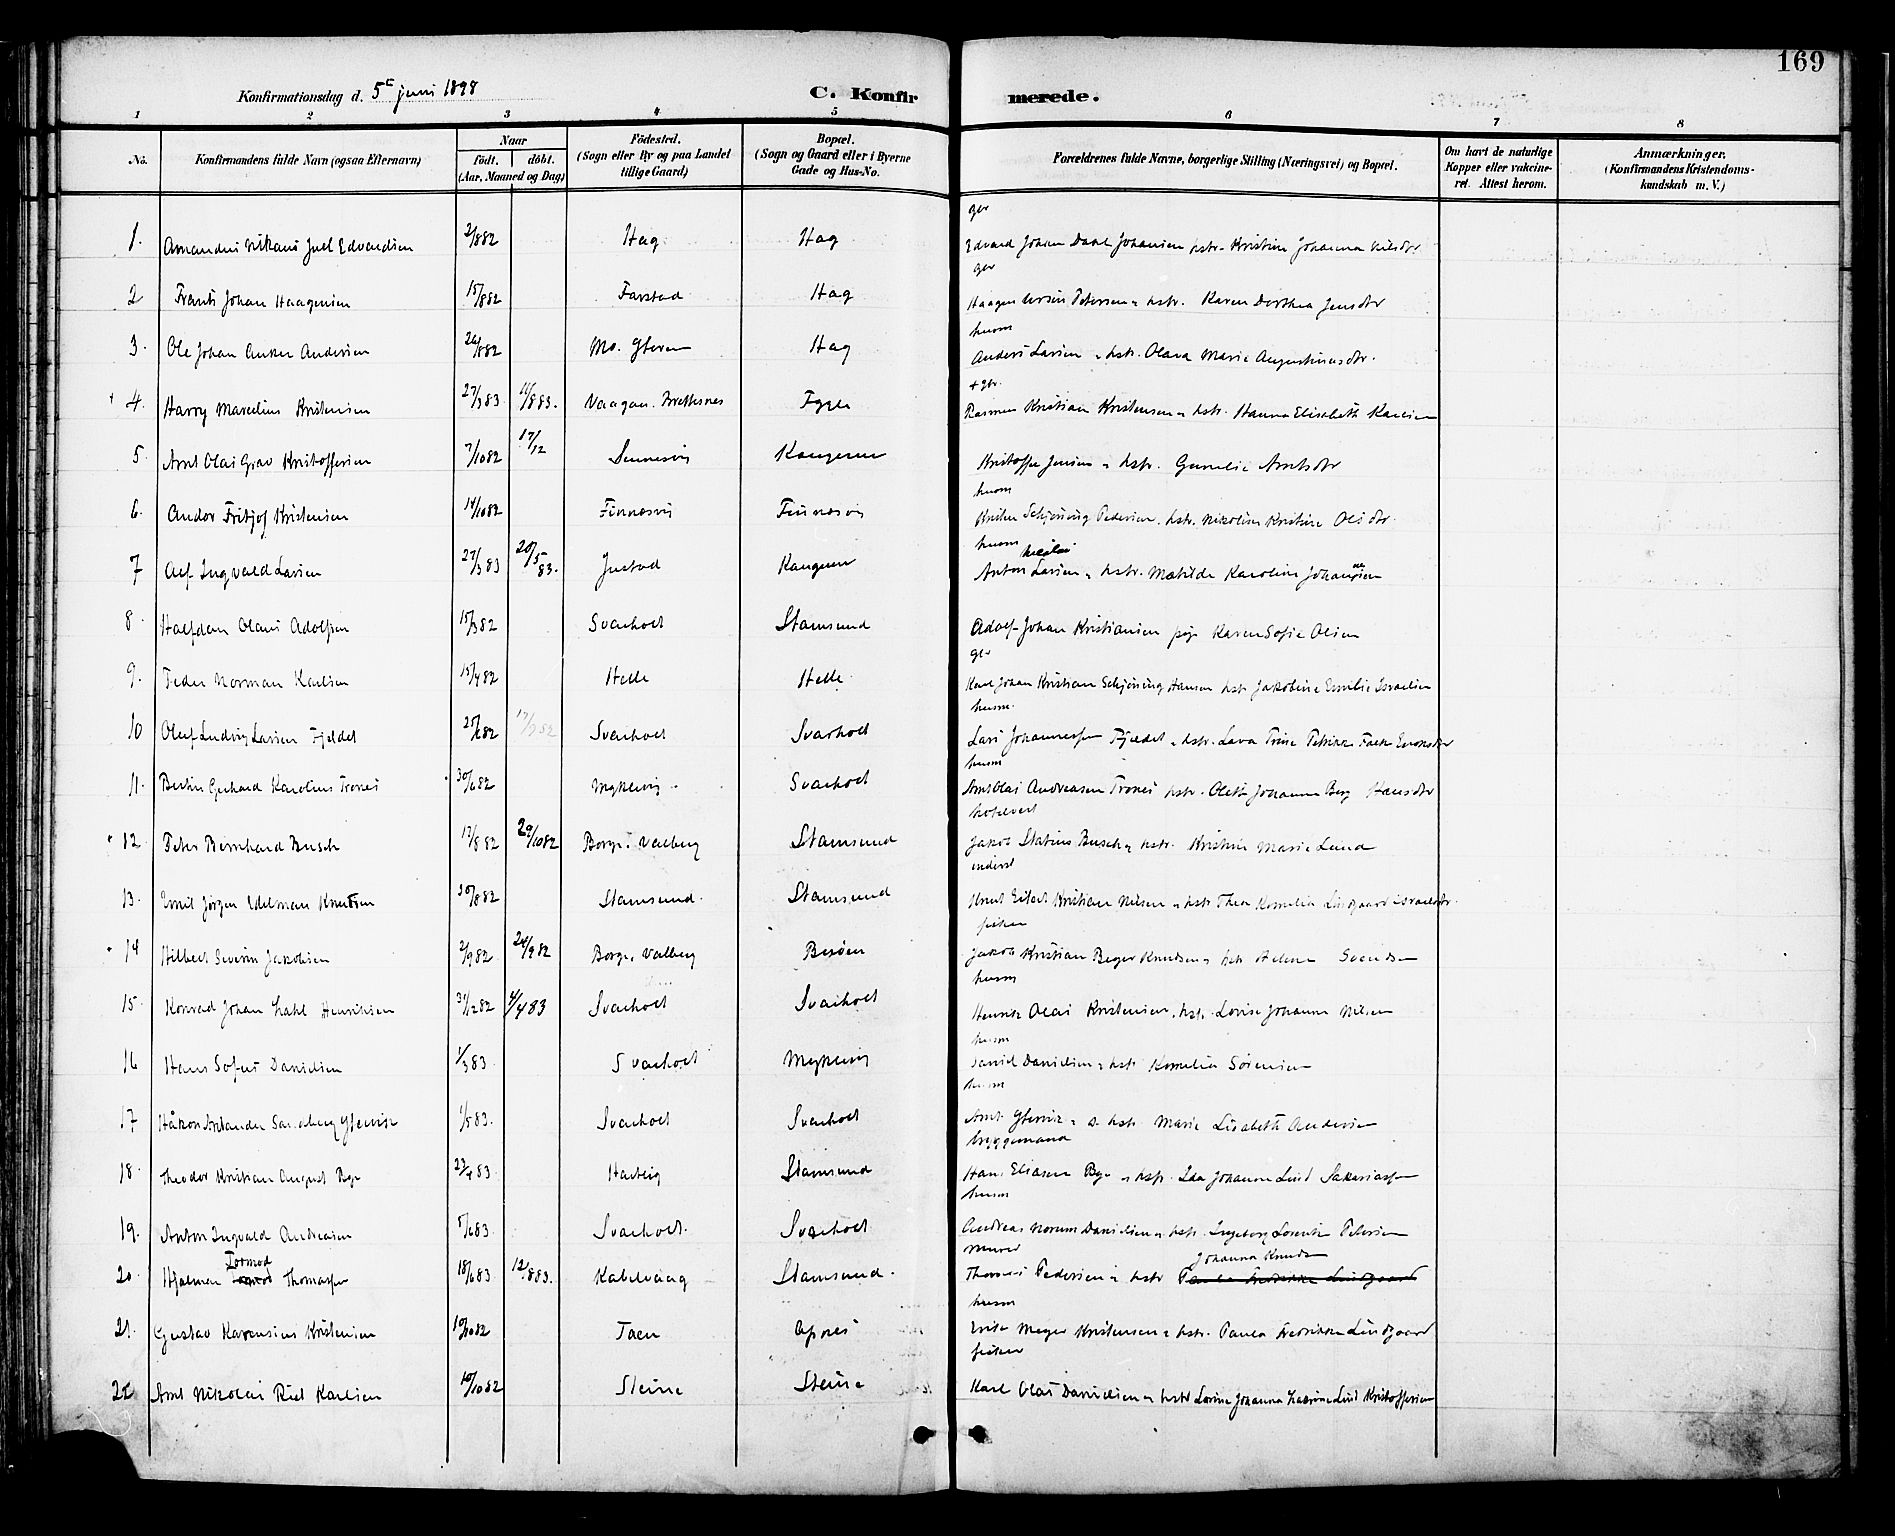 169
Konfirmationsdag d. 5te juni 1898 C. Konfirmerede.
1 2 3 4 5 6 7 8
No. Konfirmandens fulde Navn (ogsaa Efternavn) Naar født. døbt. (Aar, Maaned og Dag) Fødested. (Sogn eller By og paa Landet tillige Gaard) Bopæl. (Sogn og Gaard eller i Byerne Gade og Hus-No. Forældrenes fulde Navne, borgerlige Stilling (Næringsvei) og Bopæl. Om havt de naturlige Kopper eller vaccineret. Attest herom. Anmærkninger. (Konfirmandens Kristendomskundskab m. V.)
gbr
1. Juel Edvardsen 2/8 82 Hag Hag Edvard Johan Daal Johansen hstr. Kristine Johanna Nilsdtr
gbr
2 Frants Johan Haagensen 15/8 82 Farstad Hag Haagen Petersen hstr. Karen Dorthea Jensdtr
husm
3. Ole Johan Anker Andersen 82 Mo. Hag Anders Larsen hstr. Olava Marie Augustinusdtr.
+ gbr.
4. Harry Marcelius Kristensen 27/3 83 11/8 83. Vaagan. Brettesnes Fygle Rasmus Kristian Kristensen hstr. Hanna Elisabeth Karlsen
5. Arnt Olai Grav Kristoffersen 7/10 82 17/12 Kangeren Kristoffer Jensen hstr. Gunelie Arntsdtr
husm
6. Andor Fritjof Kristensen 14/10 82 Finnesvis Finnesvis Schjøning Pedersen, hstr. Nikoline Kristine Olsdtr.
husm Nicolai
7 Alf Ingvald Larsen 27/3 83 20/5 83. Justad Kangeren Anton Larsen hstr. Matilde Karoline Johansen
8. Halfdan Olaus Adolfsen 15/3 82 Svarholt Stamsund Adolf Johan Kristiansen pige Karen Sofie Olsen
gbr
9. Peder Norman Karlsen 15/4 82 Helle Helle Karl Johan Kristian Schjøning Hansen hstr Jakobine Emilie Israelsen
husm.
10 Oluf Ludvig Larsen Fjeldet 25/ 82 17/ 82 Svarholt Svarholt Lars Johannessen Fjeldet hstr. Lava Trine Petrikke Falk
husm
11. Gerhard Karolius Trones 30/6 82 Myklevig Svarholt Arnt Olai Andreasen Trones hstr. Oleta Johanna Berg Hansdtr
12. Peter Bernhard Busch 17/8 82 29/10 82 Borge. Valberg Stamsund Jakob Statius Busch hstr. Kristine Marie Lund
inderst
13. Emil Jørgen Edelman Knutsen 30/8 82 Stamsund. Stamsund Knut Eilert Kristian Nilsen hstr. Thea Kornelia Lindgaard Israelsdtr.
fisker
14 Hilbert Severin Jakobsen 2/9 82 24/9 82 Borge. Valberg Jakob Kristian Berger Knudsen hstr Helene Svendsen
husm
15. Konrad Johan Zahl Henriksen 31/12 82 4/4 83 Svarholt Svarholt Henrik Olai Kristensen, hstr. Lovise Johanna Nilsen
husm
16 Hans Sofus Danielsen 1/3 83 Svarholt Myklevig Daniel Danielsen hstr Kornelia Sørensen
husm
17 Håkon 1/5 83. Svarholt Svarholt Arnt hstr Marie Lisabeth Andersen
bryggemand
18. Theodor Kristian August Bye 23/4 83 Hartvig Stamsund Hans Eliasen Bye hstr. Ida Johanna Lind Sakariassen
husm
19. Anton Ingvald Andreasen 5/6 83 Svarholt. Svarholt Andreas Norum Danielsen hstr. Ingeborg Lorentze Petersen
murer Johanna Knuds
Tormod
20. Hjalmar Thomassen 18/6 83 12/8 83. Kabelvaag Stamsund. Thomas Pedersen hstr Paula Fredrikke Lindgaard
husm
21. Gustav Karensius Kristensen 19/10 82 Taen Apnes Meyer Kristensen hstr. Paula Fredrikke Lindgaard
fisker
22 Arnt Nikolai Riel Karlsen 10/10 82 Steine Steine Karl Olai Danielsen hstr Lorine Johanna Lind Kristoffersen